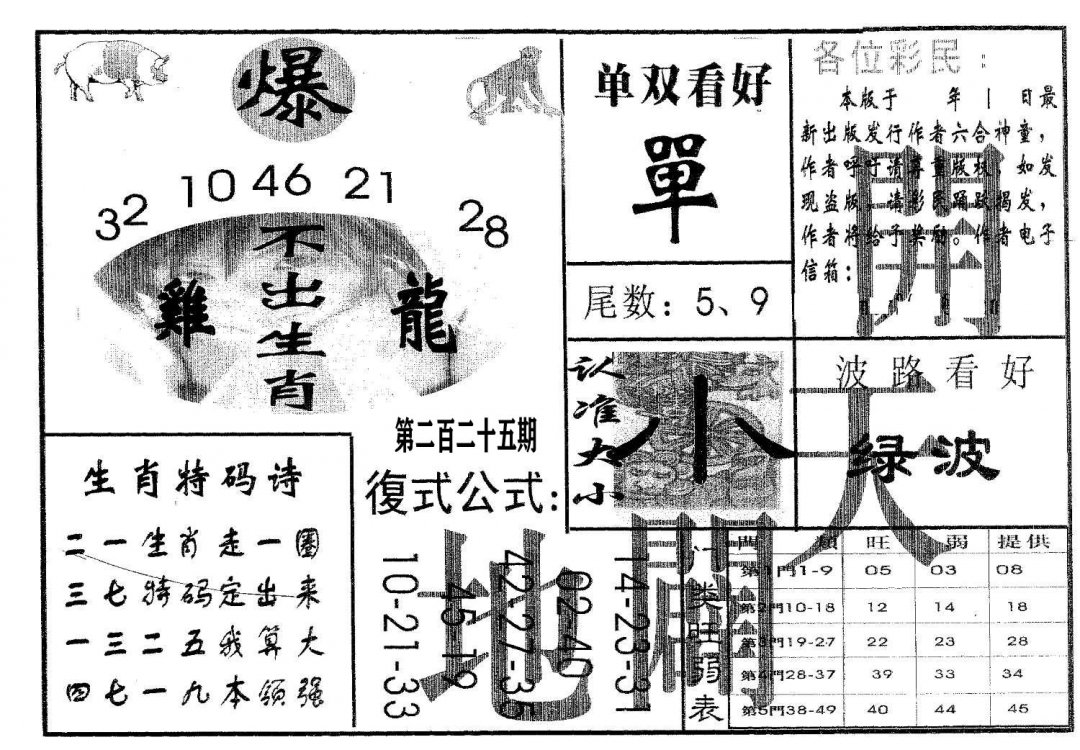 爆
32 10 46 21 28
不出生肖
雞
龍
第二百二十五期
单双看好
單
尾数：5、9
各位彩民：
本版于 年 | 日最
新出版发行作者六合神童，
作者呼吁请尊重版权，如发
现盗版，请彩民踊跃揭发，
作者将给予奖励。作者电子
信箱：
认准大小
小
波路看好
绿波
天
地
開
生肖特码诗
二一生肖走一圈
三七特码定出来
一三二五我算大
四七一九本领强
復式公式：
10-21-33
45-19
42-27-35
02-40
14-23-31
门类旺弱表
門類 旺 弱 提供
第1門1-9 05 03 08
第2門10-18 12 14 18
第3門19-27 22 23 28
第4門28-37 39 33 34
第5門38-49 40 44 45